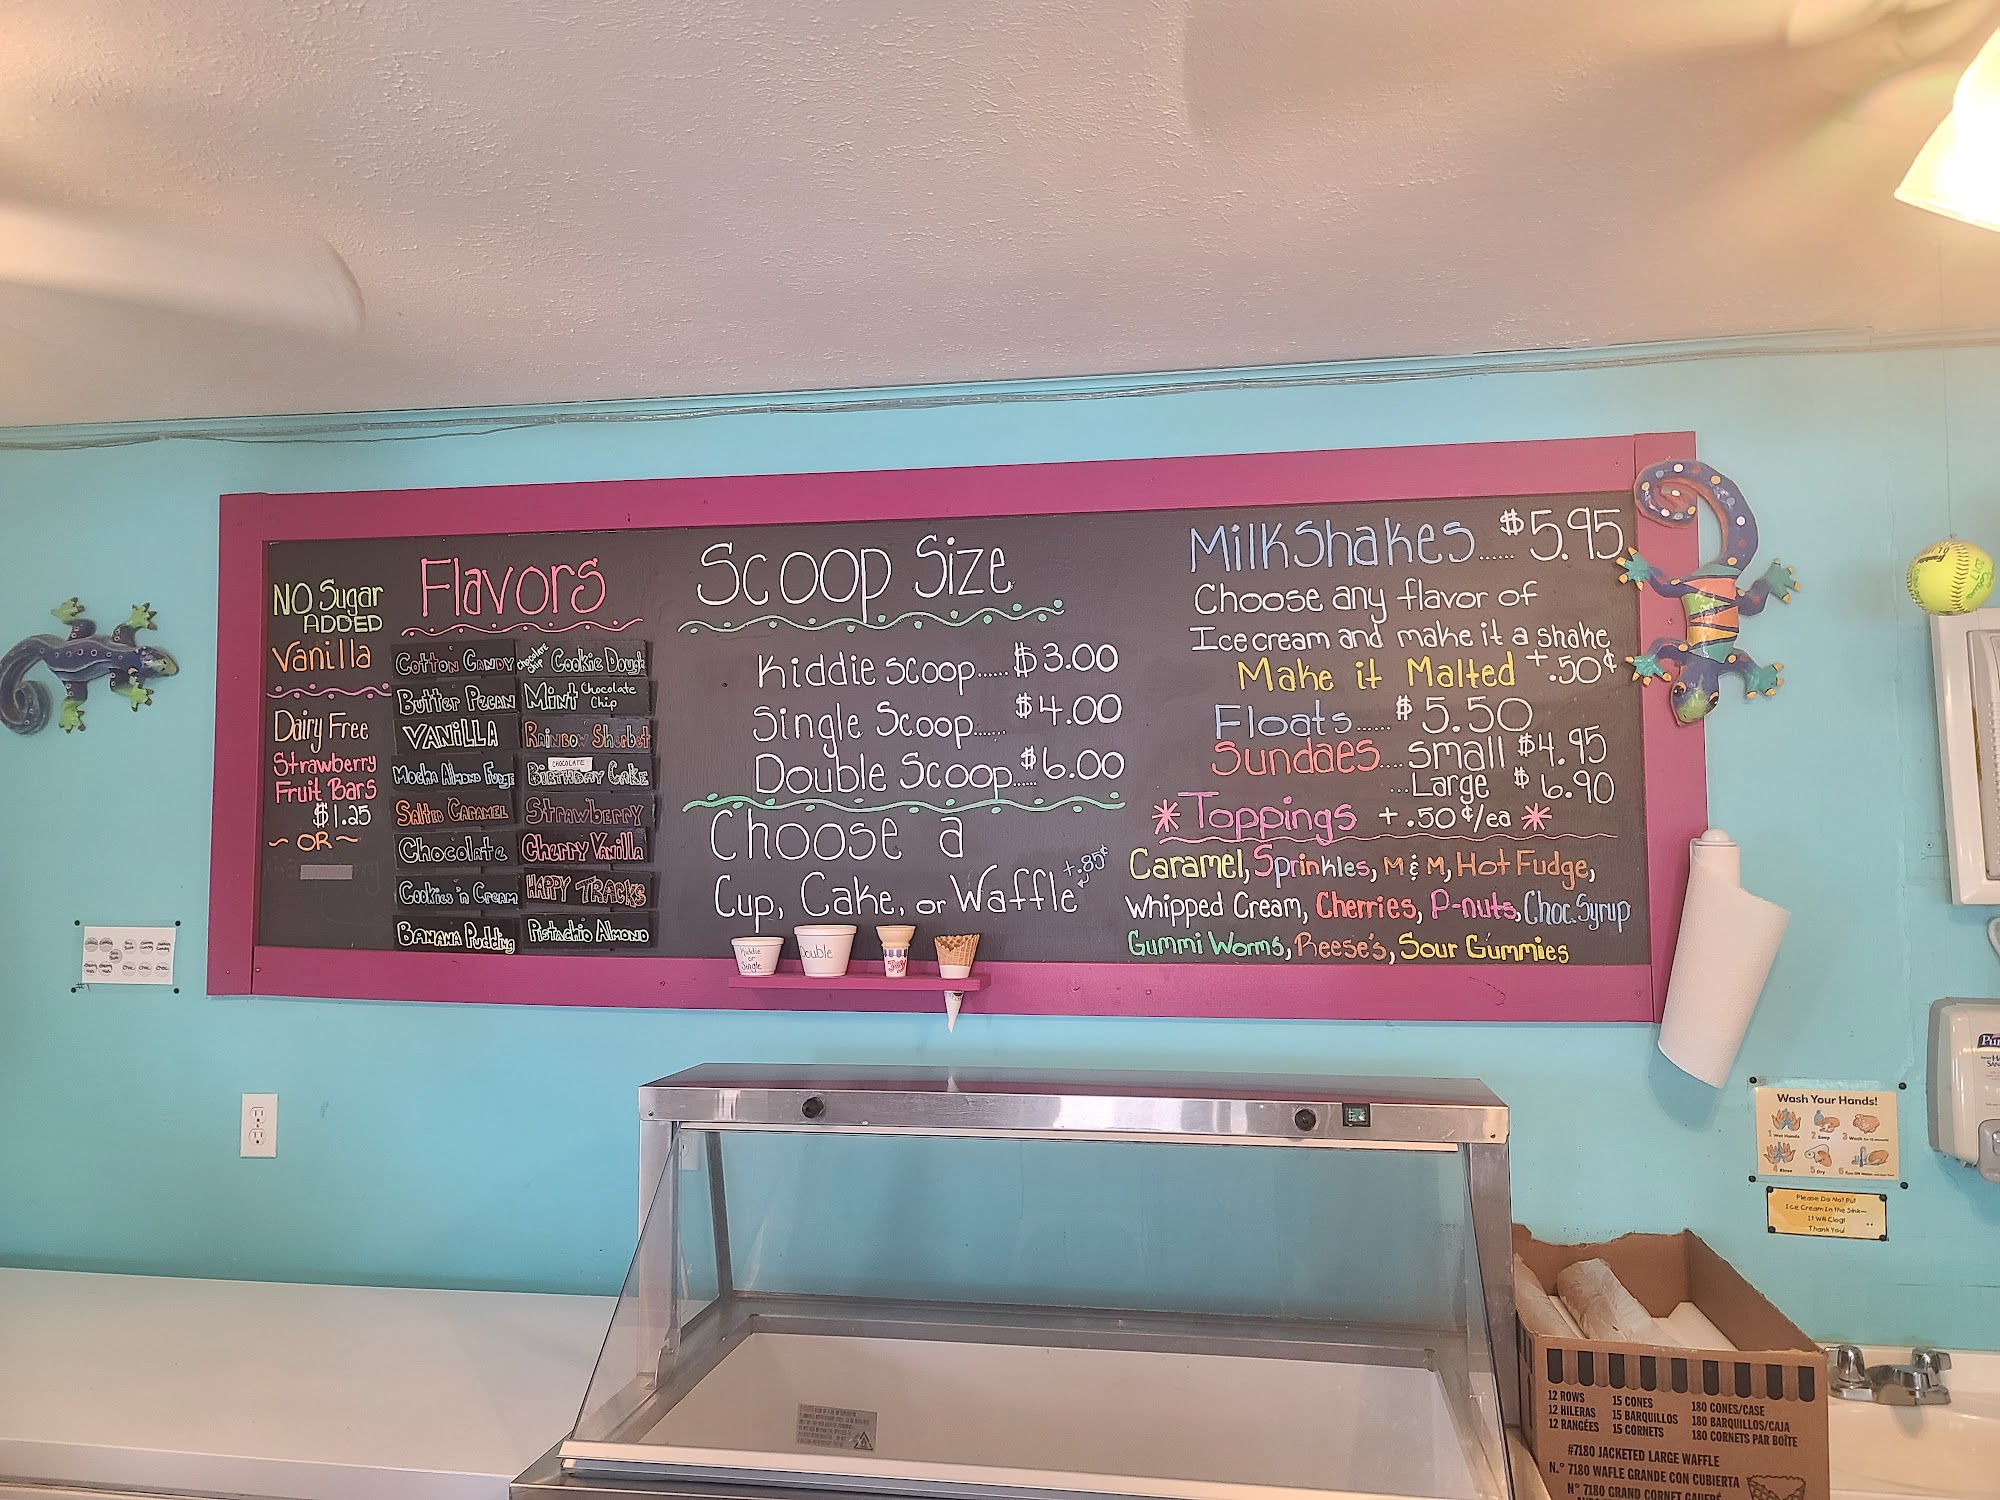 NO Sugar
ADDED
Vanilla
Dairy Free
Strawberry
Fruit Bars
$1.25
~ OR ~
Flavors
Cotton Candy
Butter Pecan
Vanilla
Mocha Almond Fudge
Salted Caramel
Chocolate
Cookies 'n Cream
Banana Pudding
Chocolate Chip Cookie Dough
Mint Chocolate Chip
Rainbow Sherbet
CHOCOLATE
Birthday Cake
Strawberry
Cherry Vanilla
HAPPY TRACKS
Pistachio Almond
Scoop Size
Kiddie scoop......$3.00
Single Scoop.......$4.00
Double Scoop.....$6.00
Choose a
Cup, Cake, or Waffle +.85¢
Kiddie
or
Single
Double
Joy
Milkshakes......$5.95
Choose any flavor of
Ice cream and make it a shake
Make it Malted +.50¢
Floats......$5.50
Sundaes....small $4.95
...Large $6.90
*Toppings +.50¢/ea*
Caramel, Sprinkles, M & M, Hot Fudge,
Whipped Cream, Cherries, P-nuts, Choc. Syrup
Gummi Worms, Reese's, Sour Gummies
Wash Your Hands!
1 Wet Hands 2 Soap
4 Rinse 5 Dry
Please Do Not Put
Ice Cream In the Sink—
It Will Clog!
Thank You!
12 ROWS 15 CONES 180 CONES/CASE
12 HILERAS 15 BARQUILLOS 180 BARQUILLOS/CAJA
12 RANGÉES 15 CORNETS 180 CORNETS PAR BOÎTE
#7180 JACKETED LARGE WAFFLE
N.° 7180 WAFLE GRANDE CON CUBIERTA
N° 7180 GRAND CORNET GAUFRÉ